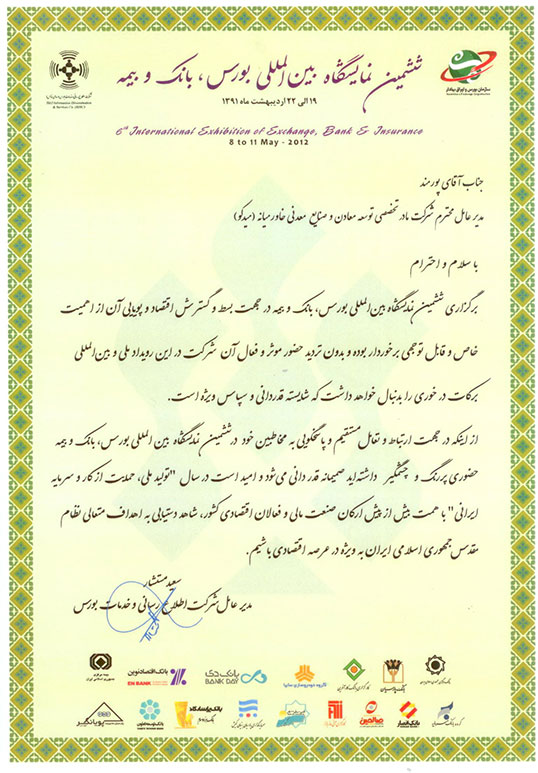 ششمین نمایشگاه بین‌المللی بورس، بانک و بیمه
۱۹ الی ۲۲ اردیبهشت ماه ۱۳۹۱
6th International Exhibition of Exchange, Bank & Insurance
8 to 11 May - 2012
سازمان بورس و اوراق بهادار
جناب آقای پورمند
مدیر عامل محترم شرکت مادر تخصصی توسعه معادن و صنایع معدنی خاورمیانه (میدکو)
با سلام و احترام
برگزاری ششمین نمایشگاه بین‌المللی بورس، بانک و بیمه در جهت بسط و گسترش اقتصاد و پویایی آن از اهمیت
خاص و قابل توجهی برخوردار بوده و بدون تردید حضور موثر و فعال آن شرکت در این رویداد ملی و بین‌المللی
برکات در خوری را بدنبال خواهد داشت که شایسته قدردانی و سپاس ویژه است.
از اینکه در جهت ارتباط و تعامل مستقیم و پاسخگویی به مخاطبین خود در ششمین نمایشگاه بین المللی بورس، بانک و بیمه
حضوری پررنگ و چشمگیر داشته‌اید صمیمانه قدردانی می‌شود و امید است در سال "تولید ملی، حمایت از کار و سرمایه
ایرانی" با همت بیش از پیش ارکان صنعت مالی و فعالان اقتصادی کشور، شاهد دستیابی به اهداف متعالی نظام
مقدس جمهوری اسلامی ایران به ویژه در عرصه اقتصادی باشیم.
سعید مستشار
مدیر عامل شرکت اطلاع رسانی و خدمات بورس
بیمه مرکزی
جمهوری اسلامی ایران
بانک اقتصاد نوین
EN BANK
بانک دی
BANK DAY
گروه خودروسازی سایپا
بانک پارسیان
بانک پاسارگاد
بانک انصار